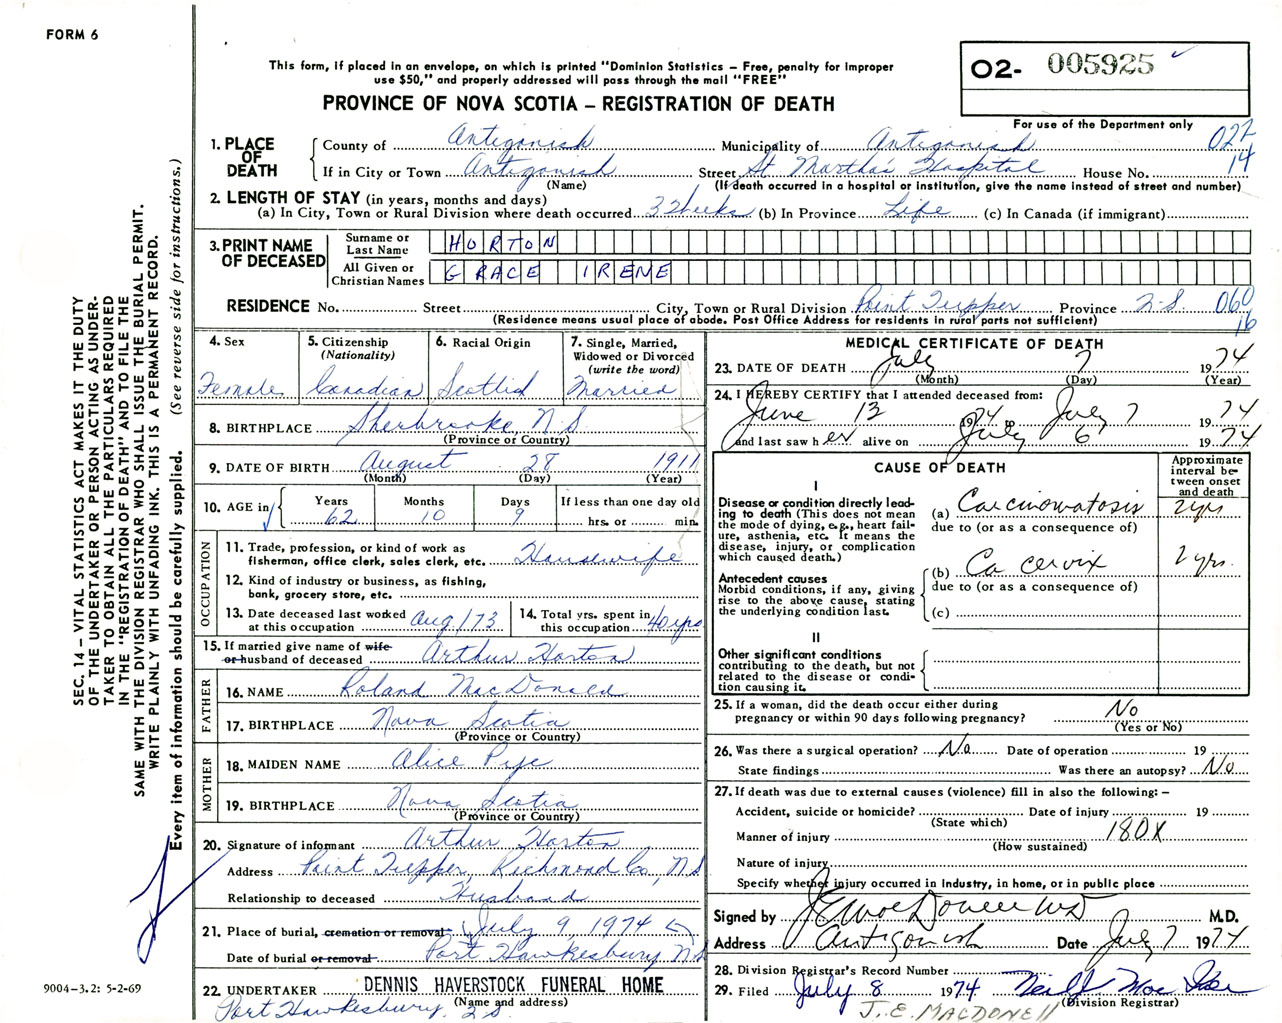 FORM 6
This form, if placed in an envelope, on which is printed "Dominion Statistics – Free, penalty for improper
use $50," and properly addressed will pass through the mail "FREE"
PROVINCE OF NOVA SCOTIA – REGISTRATION OF DEATH
02- 005925
For use of the Department only
022
14
1. PLACE OF DEATH
County of Antigonish Municipality of Antigonish
If in City or Town Antigonish Street St Martha's Hospital House No.
(Name) (If death occurred in a hospital or institution, give the name instead of street and number)
2. LENGTH OF STAY (in years, months and days)
(a) In City, Town or Rural Division where death occurred 3 Weeks (b) In Province Life (c) In Canada (if immigrant)
3. PRINT NAME OF DECEASED
Surname or Last Name HORTON
All Given or Christian Names GRACE IRENE
RESIDENCE No. Street City, Town or Rural Division Point Tupper Province N-S. 060
16
(Residence means usual place of abode. Post Office Address for residents in rural parts not sufficient)
4. Sex Female
5. Citizenship (Nationality) Canadian
6. Racial Origin Scottish
7. Single, Married, Widowed or Divorced (write the word) Married
8. BIRTHPLACE Sherbrooke, N S
(Province or Country)
9. DATE OF BIRTH August 28 1911
(Month) (Day) (Year)
10. AGE in Years 62 Months 10 Days 9 If less than one day old hrs. or min.
OCCUPATION
11. Trade, profession, or kind of work as
fisherman, office clerk, sales clerk, etc. Housewife
12. Kind of industry or business, as fishing,
bank, grocery store, etc.
13. Date deceased last worked at this occupation Aug./73
14. Total yrs. spent in this occupation 40 yrs
15. If married give name of wife
or husband of deceased Arthur Horton
FATHER
16. NAME Roland MacDonald
17. BIRTHPLACE Nova Scotia
(Province or Country)
MOTHER
18. MAIDEN NAME Alice Pye
19. BIRTHPLACE Nova Scotia
(Province or Country)
20. Signature of informant Arthur Horton
Address Point Tupper, Richmond Co, N.S
Relationship to deceased Husband
21. Place of burial, cremation or removal July 9, 1974
Date of burial or removal Port Hawkesbury N.S
22. UNDERTAKER DENNIS HAVERSTOCK FUNERAL HOME
(Name and address)
Port Hawkesbury, N.S.
MEDICAL CERTIFICATE OF DEATH
23. DATE OF DEATH July 7 1974
(Month) (Day) (Year)
24. I HEREBY CERTIFY that I attended deceased from:
June 13 1974 July 7 1974
and last saw her alive on July 6 1974
CAUSE OF DEATH
Approximate interval between onset and death
I
Disease or condition directly lead-
ing to death (This does not mean
the mode of dying, e.g., heart fail-
ure, asthenia, etc. It means the
disease, injury, or complication
which caused death.)
(a) Carcinomatosis 2 yrs
due to (or as a consequence of)
Antecedent causes
Morbid conditions, if any, giving
rise to the above cause, stating
the underlying condition last.
(b) Ca cervix 2 yrs.
due to (or as a consequence of)
(c)
II
Other significant conditions
contributing to the death, but not
related to the disease or condi-
tion causing it.
25. If a woman, did the death occur either during
pregnancy or within 90 days following pregnancy? No
(Yes or No)
26. Was there a surgical operation? No Date of operation 19
State findings Was there an autopsy? No
27. If death was due to external causes (violence) fill in also the following: –
Accident, suicide or homicide? Date of injury 19
(State which)
Manner of injury 180X
(How sustained)
Nature of injury
Specify whether injury occurred in industry, in home, or in public place
Signed by J E MacDonell MD M.D.
Address Antigonish Date July 7 1974
28. Division Registrar's Record Number
29. Filed July 8 1974
(Division Registrar)
J. E. MACDONELL
SEC. 14 – VITAL STATISTICS ACT MAKES IT THE DUTY
OF THE UNDERTAKER OR PERSON ACTING AS UNDER-
TAKER TO OBTAIN ALL THE PARTICULARS REQUIRED
IN THE "REGISTRATION OF DEATH" AND TO FILE THE
SAME WITH THE DIVISION REGISTRAR WHO SHALL ISSUE THE BURIAL PERMIT.
WRITE PLAINLY WITH UNFADING INK. THIS IS A PERMANENT RECORD.
Every item of information should be carefully supplied. (See reverse side for instructions.)
9004-3.2: 5-2-69